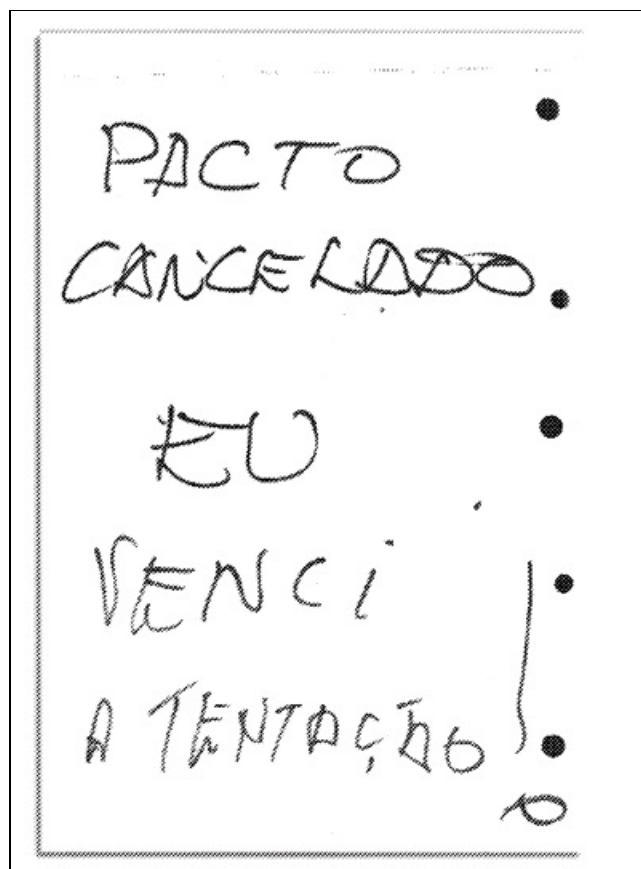 PACTO
CANCELADO
EU
VENCi
A TENTAÇÃO